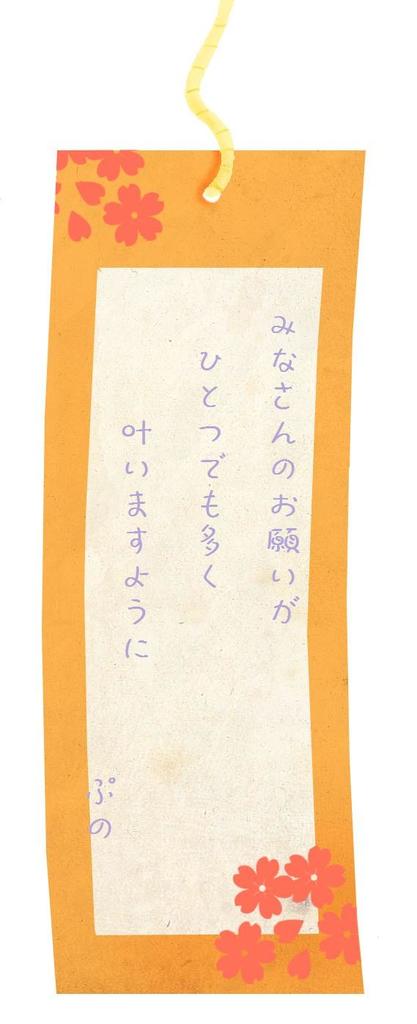 みなさんのお願いが
ひとつでも多く
叶いますように
ぷの